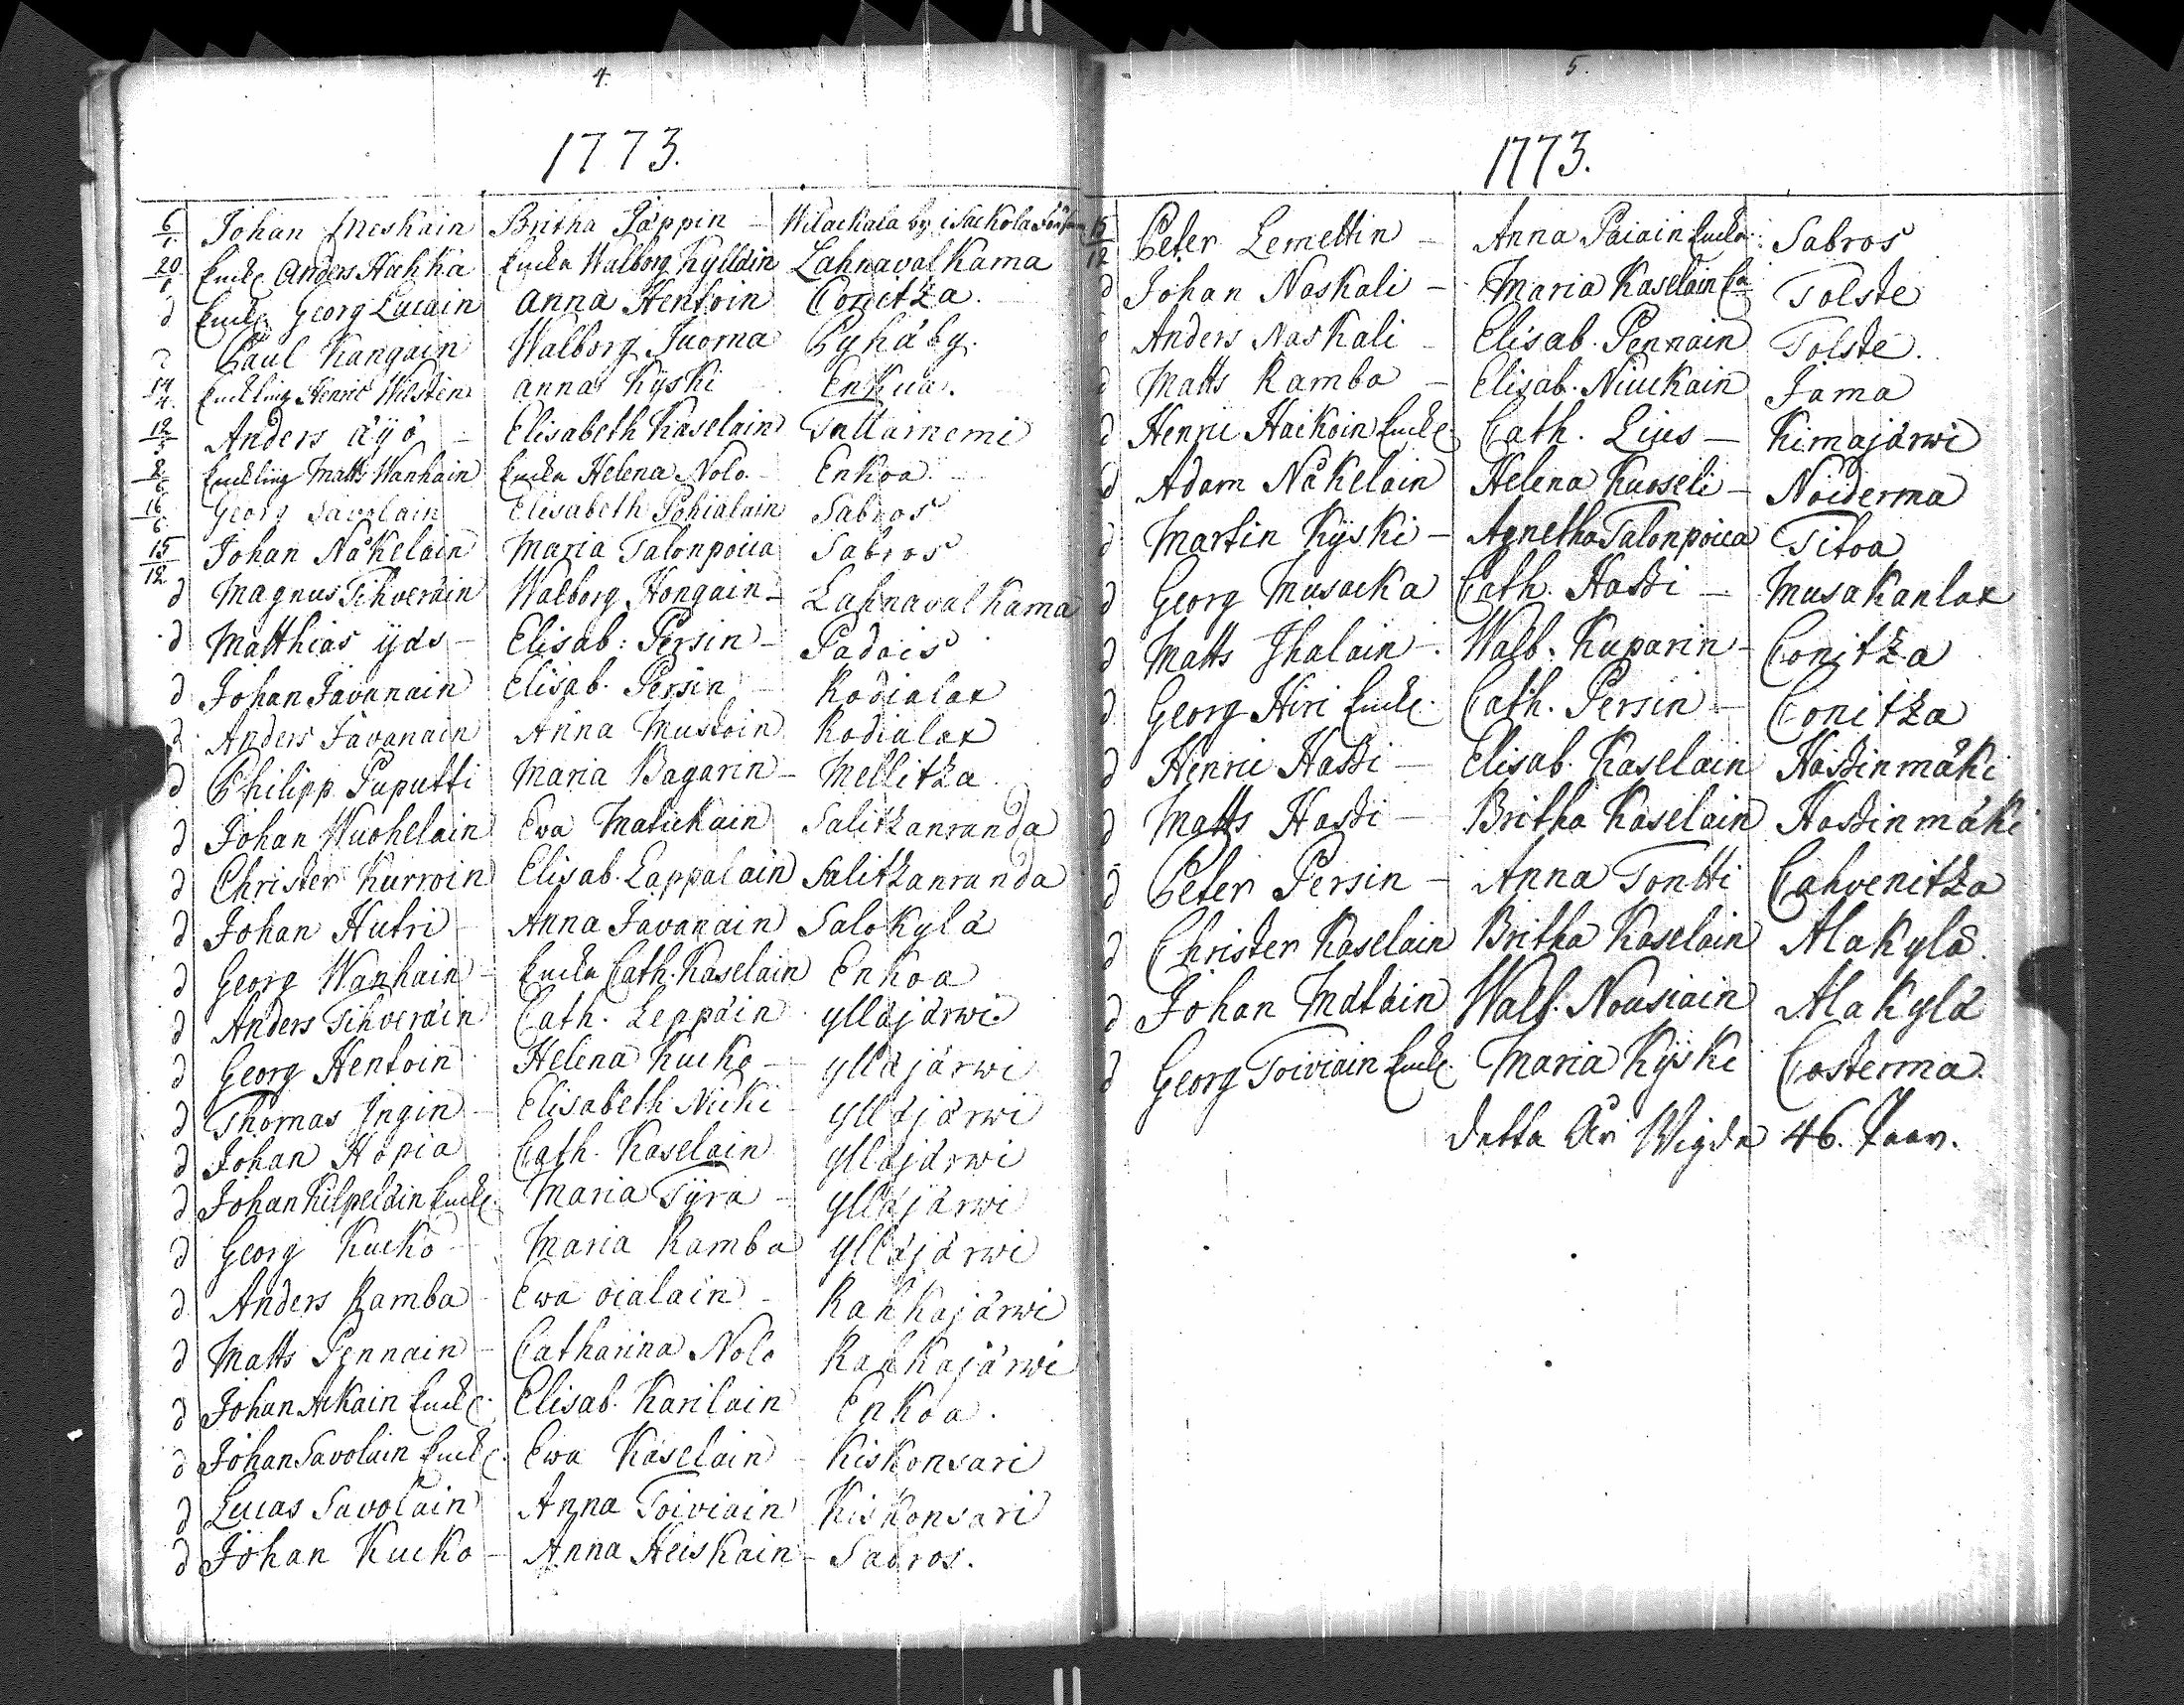 4.
1773.
6/1. Johan Meskain Britha Päppin - Wilackala by i Sackola Soken
20/1 Enckl. Anders Hahka Encka Walborg Kylläin Lahnavalkama
d Enckl. Georg Lucain Anna Hentoin Conitza.
d Paul Kangain Walborg Juoma Pyhäby.
14/4. Enckling Henric Wilsten Anna Kyski Enkua.
12/5 Anders äyö - Elisabeth Kaselain Tallainemi
2/6 Enckling Matts Wanhain Encka Helena Nolo. Enkoa.
16/6 Georg Savolain Elisabeth Pohialain Sabros
15/12 Johan Nåkelain Maria Talonpoica Sabros
d Magnus Tihveräin Walborg Hongain - Lahnavalkama
d Matthias yäs - Elisab: Persin - Padois
d Johan Javanain Elisab. Persin - Rodialax
d Anders Javanain Anna Mustoin Rodialax
d Philipp Paputti Maria Bagarin - Mellitza
d Johan Wuohelain Ewa Matickain Salitzanranda
d Christer Kurwin Elisab. Lappalain Salitzanranda
d Johan Hutri - Anna Javanain Salokylä
d Georg Wanhain - Encka Cath. Kaselain Enkoa
d Anders Tihveräin Cath. Leppäin ylläjärwi
d Georg Hentoin Helena Kucko - ylläjärwi
d Thomas Ingin - Elisabeth Nicki ylläjärwi
d Johan Hopia Cath. Kaselain ylläjärwi
d Johan Kilpeläin Enckl. Maria Tyra - ylläjärwi
d Georg Kucko - Maria Ramba ylläjärwi
d Anders Ramba - Ewa oialain - Kaukajärwi
d Matts Pennain - Catharina Nolo Kaukajärwi
d Johan Ackain Enckl. Elisab. Karilain Enkoa.
d Johan Savolain Enckl. Ewa Kaselain - Kiskonsari
d Lucas Savolain Anna Toiviain Kiskonsari
d Johan Kucko - Anna Heiskain - Sabros.
5.
1773.
15/12 Peter Lemettin - Anna Paiain Encka: Sabros
d Johan Naskali - Maria Kaselain Ea Tolste
d Anders Naskali - Elisab. Pennain Tolste.
d Matts Ramba - Elisab. Niuckain Jama
d Henric Haikoin Enckl. Cath. Lius - Kimajärwi
d Adam Nåkelain Helena Kuoseli - Noiderma
d Martin Kyski - Agnetha Talonpoica Titoa
d Georg Musacka Cath. Hasti - Musakanlax
d Matts Ihalain - Walb. Kuparin - Conitza
d Georg Hiri Enckl. Cath. Persin - Conitza
d Henric Hasti - Elisab. Kaselain Hastinmäki
d Matts Hasti - Britha Kaselain Hastinmäki
d Peter Persin - Anna Tontti Cahvenitza
d Christer Kaselain Britha Kaselain Alakylä.
d Johan Mätäin Walb. Nousiain Alakylä
d Georg Toiviain Enckl. Maria Kyski Costerma.
detta År Wigde 46. Paar.